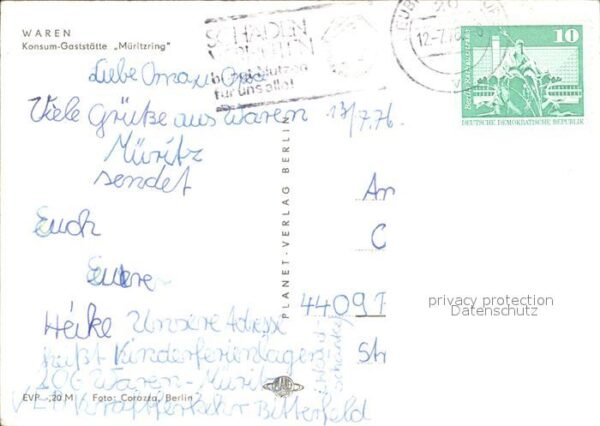 WAREN
Konsum-Gaststätte „Müritzring"
SCHADEN
VERHÜTEN
Nutzen
für uns alle!
20
12-7.
10
DEUTSCHE DEMOKRATISCHE REPUBLIK
Liebe Oma u. Opa
Viele Grüße aus Waren 13/7.76
Müritz
sendet
Euch
Euere
Heike Unsere Adresse
heißt Kinderferienlager
206 Waren-Müritz
VEB Kraftverkehr Bitterfeld
PLANET-VERLAG BERLIN
An
C
4409
Str
privacy protection
Datenschutz
EVP -,20 M / Foto: Corazza, Berlin